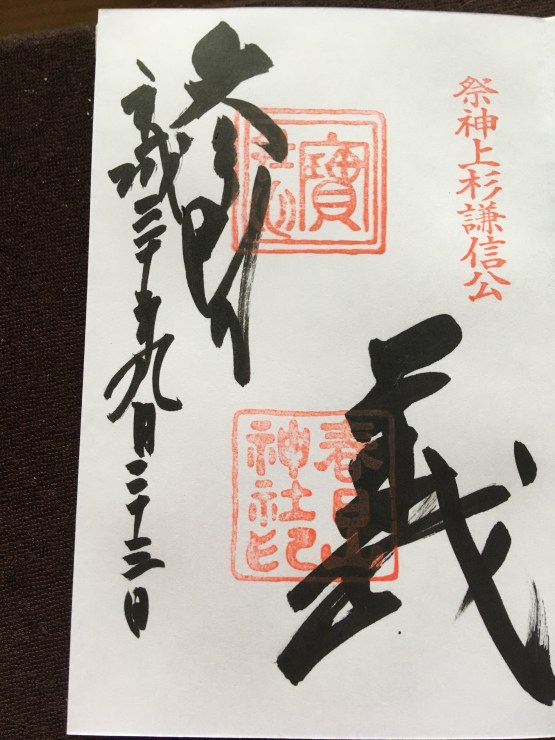 祭神上杉謙信公
寶
義
春日山
神社印
平成三十年九月二十三日